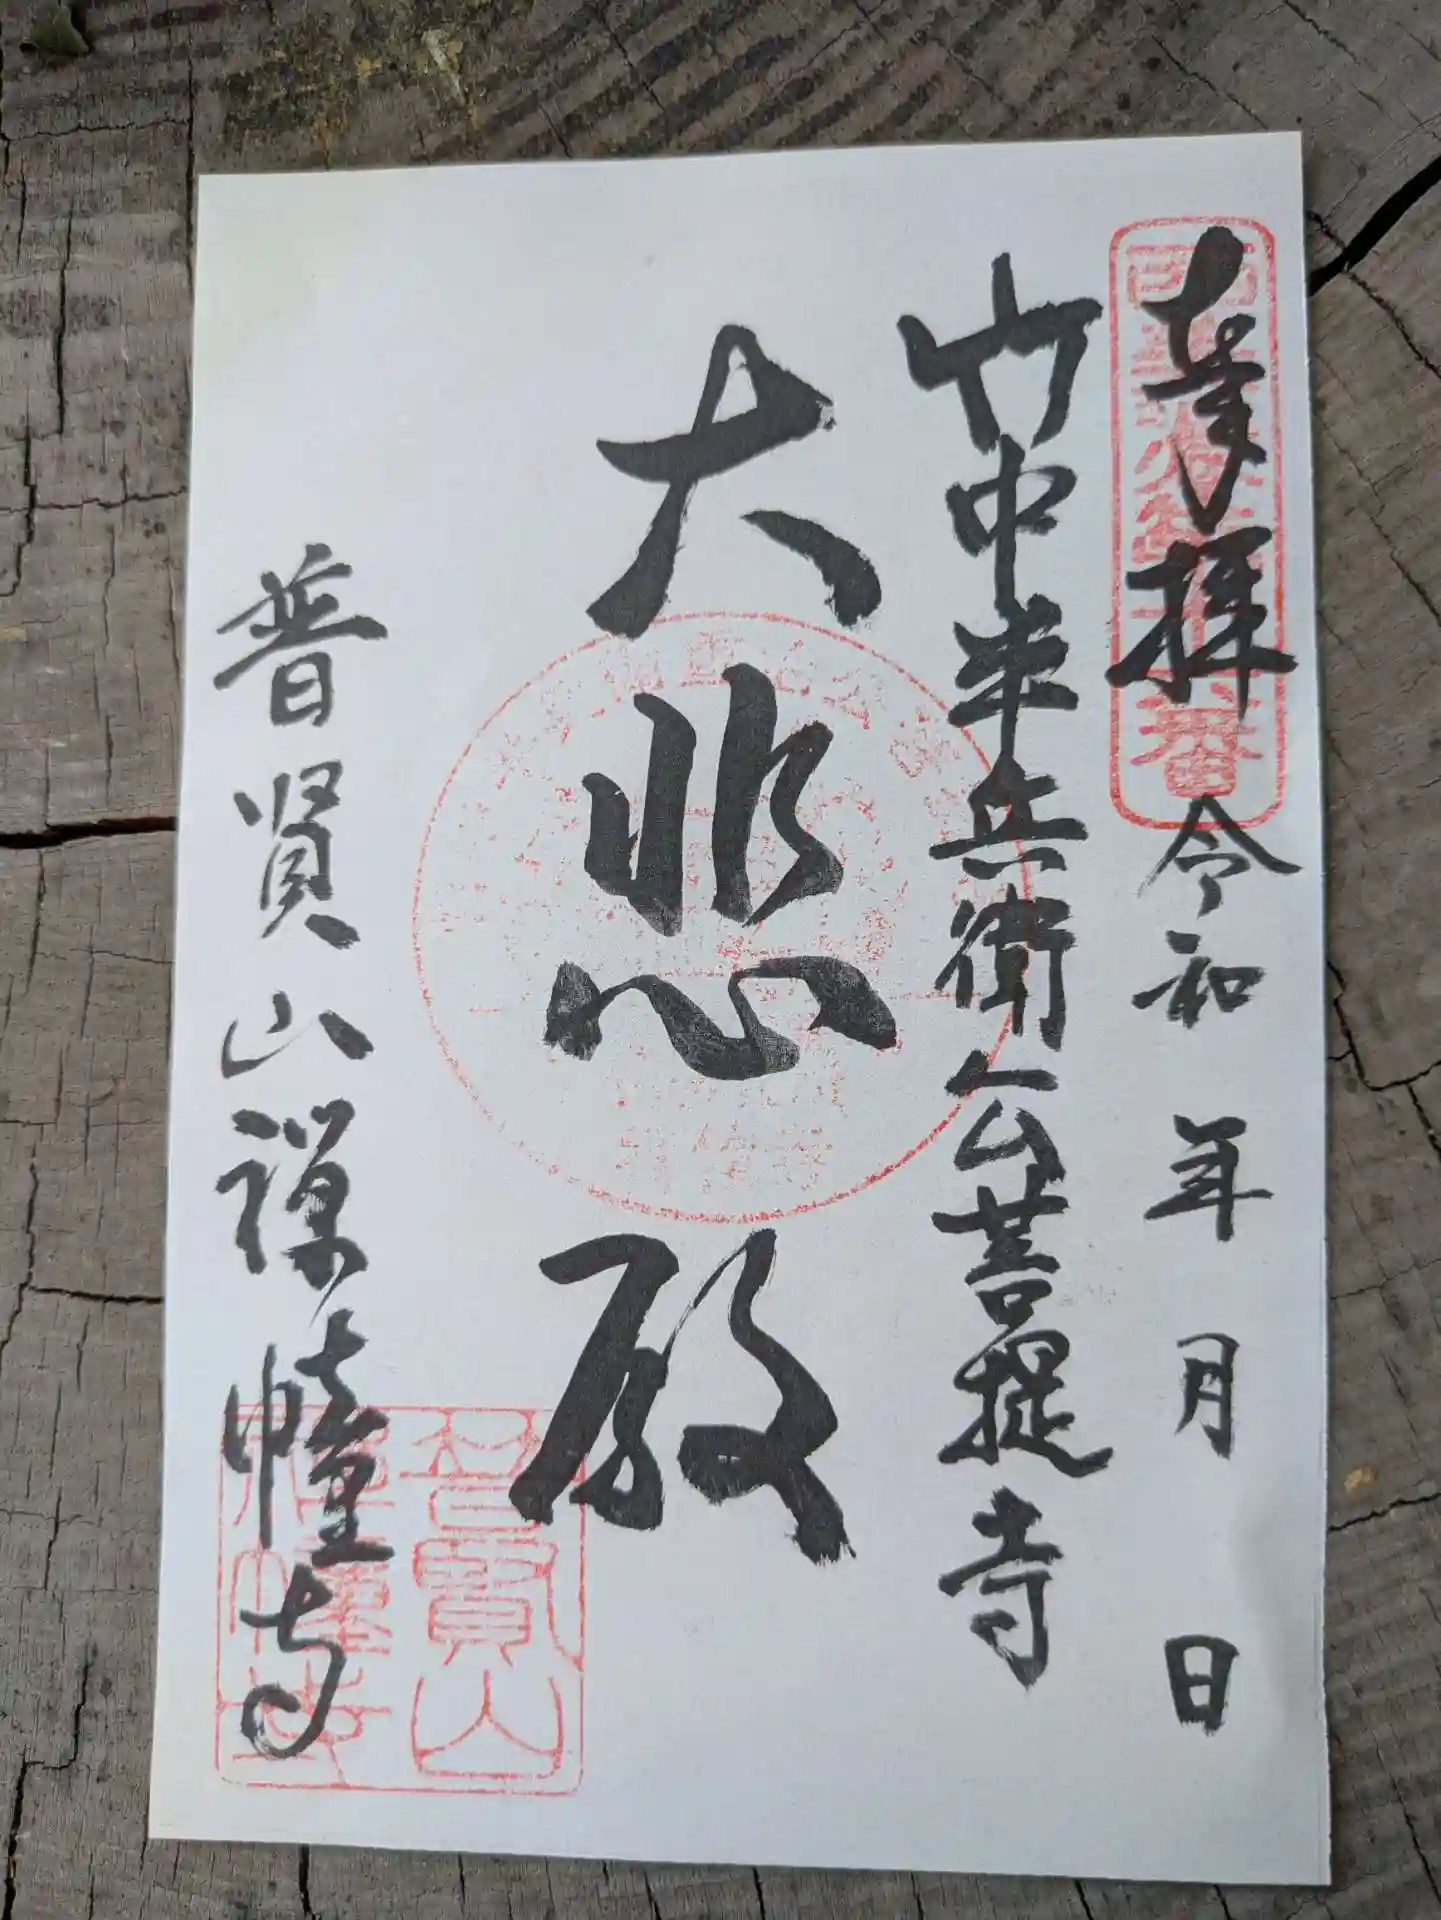 奉拝 令和 年 月 日
竹中半兵衛公菩提寺
大悲殿
普賢山禅幢寺
普賢山
禅幢寺